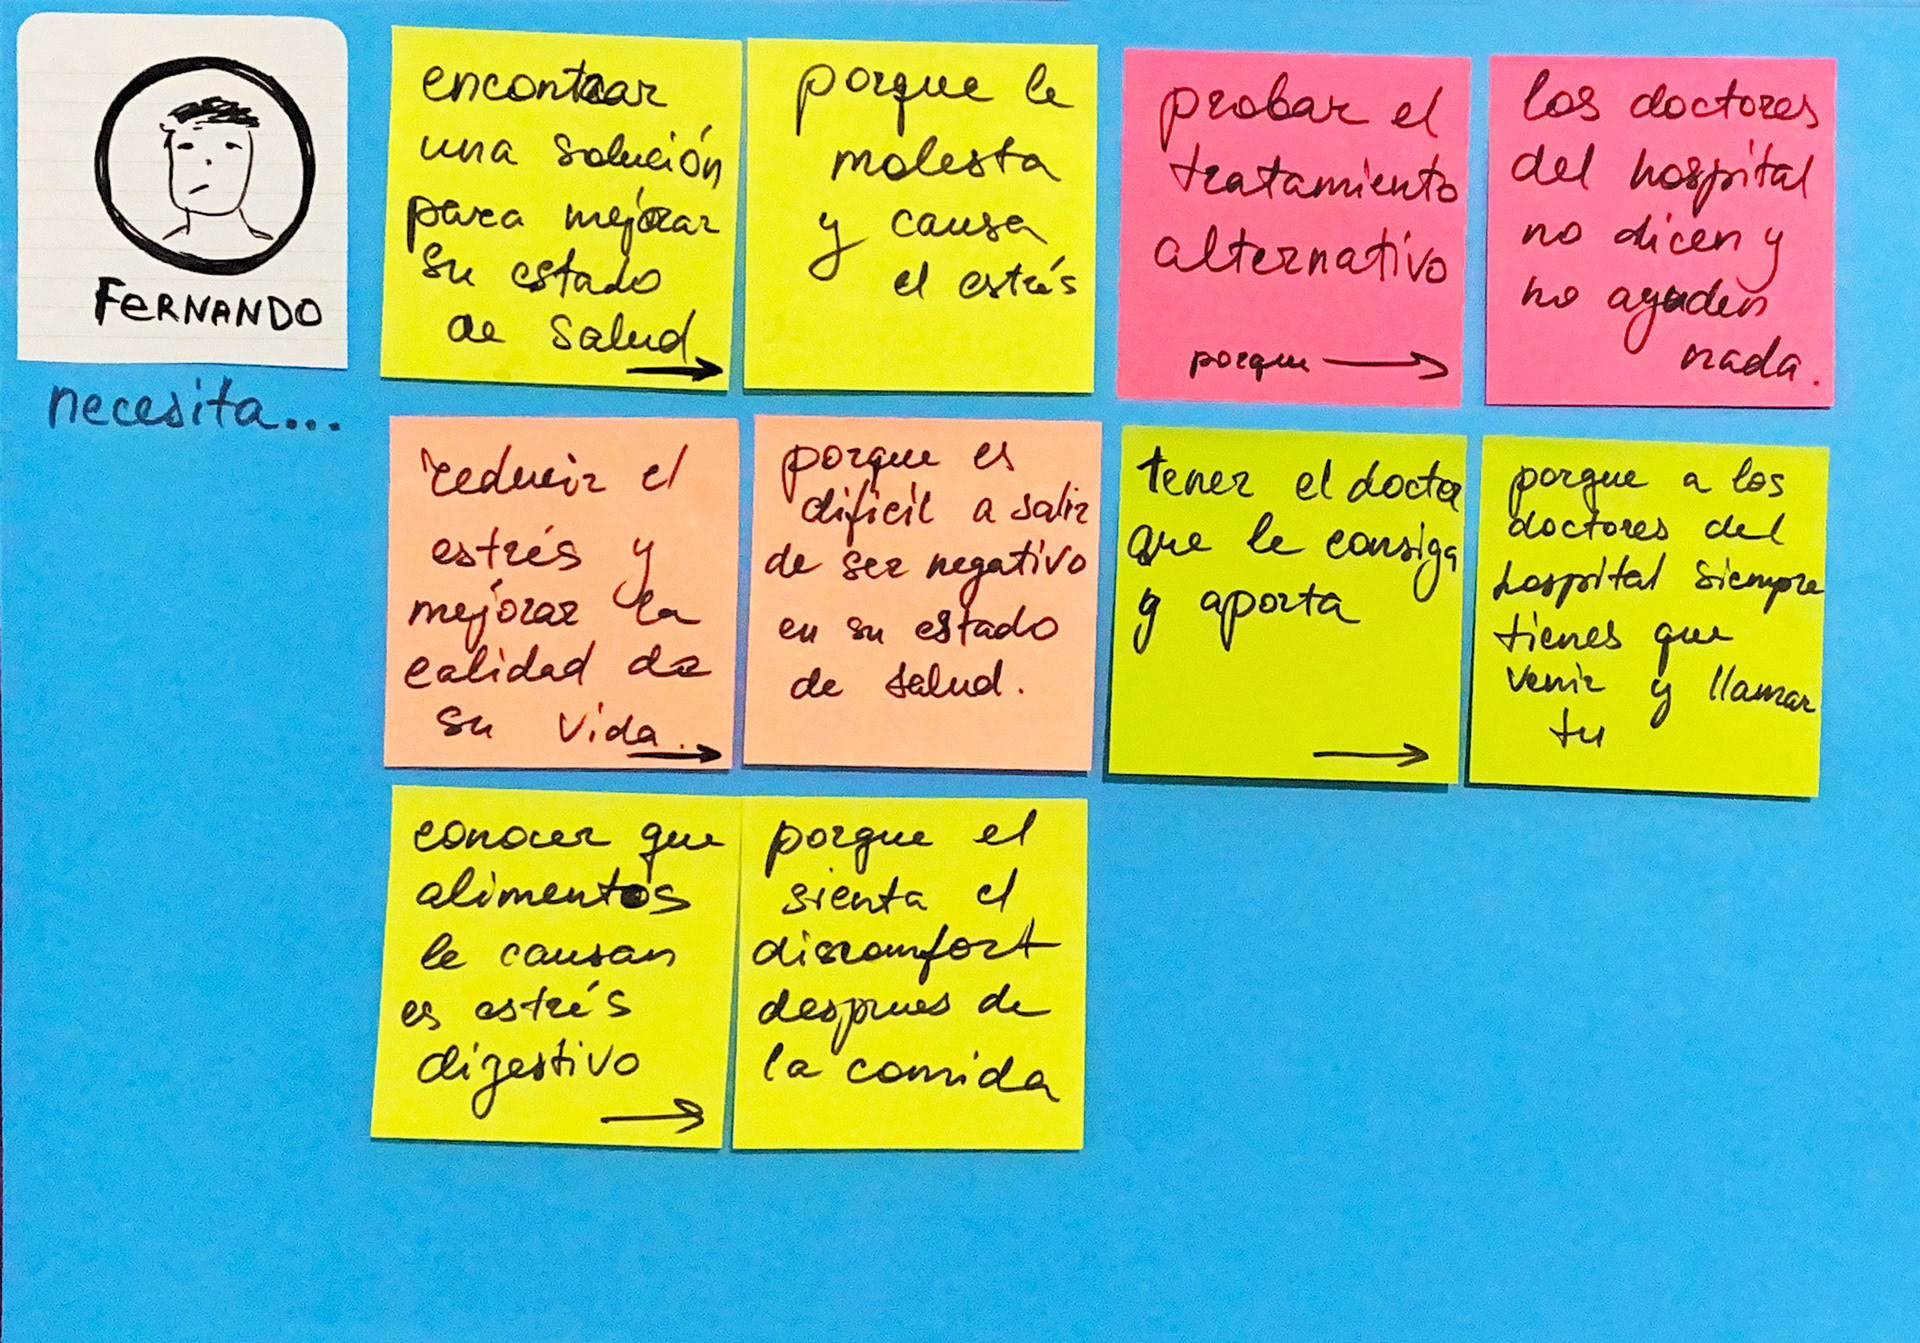 FERNANDO
necesita...
encontrar
una solución
para mejorar
su estado
de salud
porque le
molesta
y causa
el estrés
probar el
tratamiento
alternativo
porque
los doctores
del hospital
no dicen y
no ayuden
nada.
reducir el
estrés y
mejorar la
calidad de
su vida.
porque es
dificil a salir
de ser negativo
en su estado
de salud.
tener el doctor
que le consiga
y aporta
porque a los
doctores del
hospital siempre
tienes que
venir y llamar
tu
conocer que
alimentos
le causan
es estrés
digestivo
porque el
sienta el
discomfort
despues de
la comida